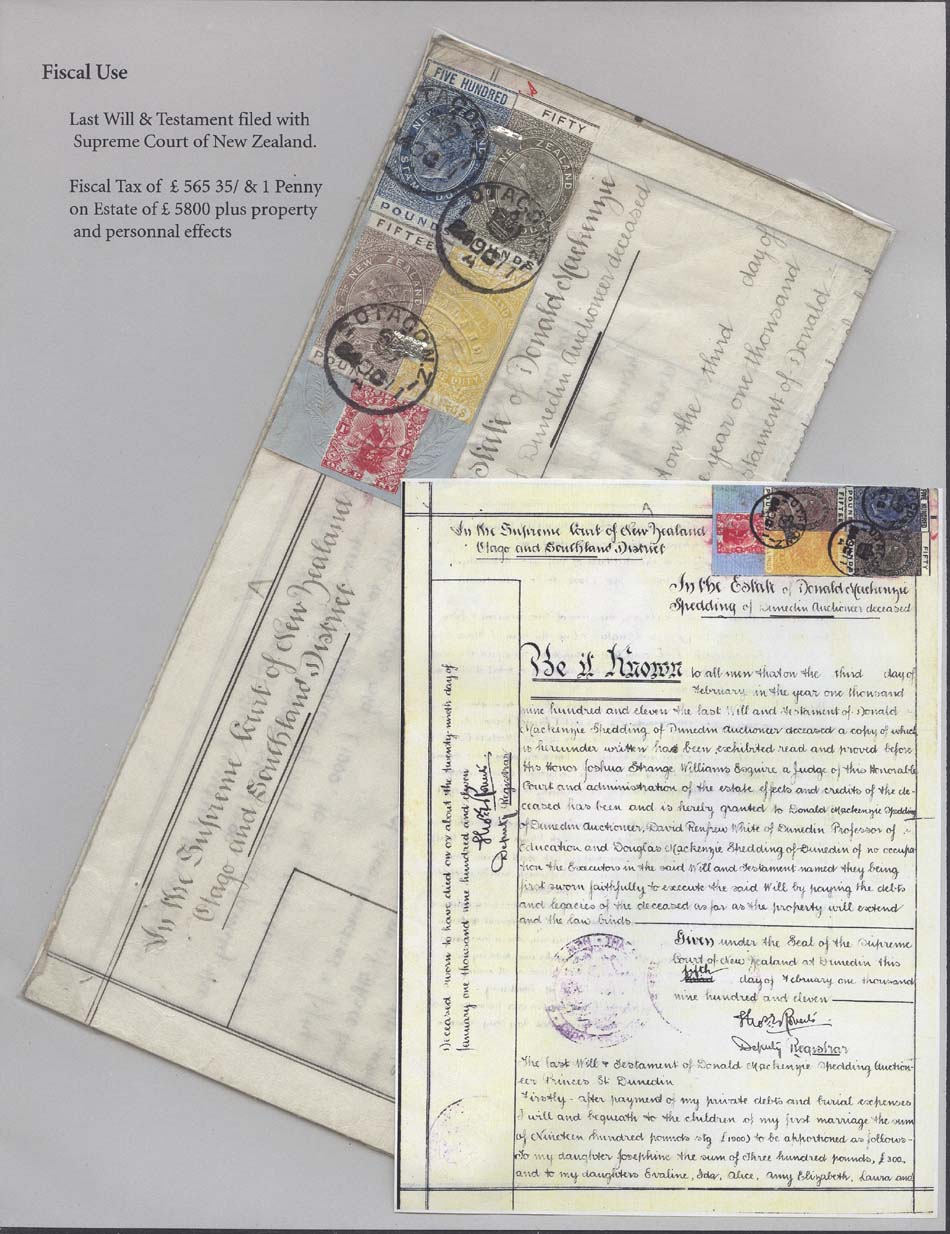 Fiscal Use
Last Will & Testament filed with
Supreme Court of New Zealand.
Fiscal Tax of £ 565 35/ & 1 Penny
on Estate of £ 5800 plus property
and personnal effects
FIVE HUNDRED
FIFTY
NEW ZEALAND
POUNDS
FIFTEEN
NEW ZEALAND
OTAGO N.Z
OTAGO N.Z
State of Donald Mackenzie
of Dunedin Auctioneer deceased
on the third day of
year one thousand
stament of Donald
In the Supreme Court of New Zealand
Otago and Southland District
In the Supreme Court of New Zealand
Otago and Southland District
FIFTEEN
POUNDS
FIFTY
In the Estate of Donald Mackenzie
Spedding of Dunedin Auctioneer deceased
Be it Known to all men that on the third day of
February in the year one thousand
nine hundred and eleven the last Will and Testament of Donald
Mackenzie Spedding of Dunedin Auctioneer deceased a copy of which
is hereunder written has been exhibited read and proved before
His Honor Joshua Strange Williams Esquire a Judge of this Honorable
Court and administration of the estate effects and credits of the de-
ceased has been and is hereby granted to Donald Mackenzie Spedding
of Dunedin Auctioneer, David Renfrew White of Dunedin Professor of
Education and Douglas Mackenzie Spedding of Dunedin of no occupa-
tion the Executors in the said Will and Testament named they being
first sworn faithfully to execute the said Will by paying the debts
and legacies of the deceased as far as the property will extend
and the law binds.
Given under the Seal of the Supreme
Court of New Zealand at Dunedin this
fifth day of February one thousand
nine hundred and eleven
Deputy Registrar
Deceased sworn to have died on or about the twenty-ninth day of
January one thousand nine hundred and eleven
Deputy Registrar
The last Will & Testament of Donald Mackenzie Spedding Auction-
eer Princes St Dunedin
Firstly - after payment of my private debts and burial expenses
I will and bequeath to the children of my first marriage the sum
of Nineteen hundred pounds stg £1900) to be apportioned as follows-
To my daughter Josephine the sum of three hundred pounds, £300.
and to my daughters Evaline, Ida, Alice, Amy Elizabeth, Laura and